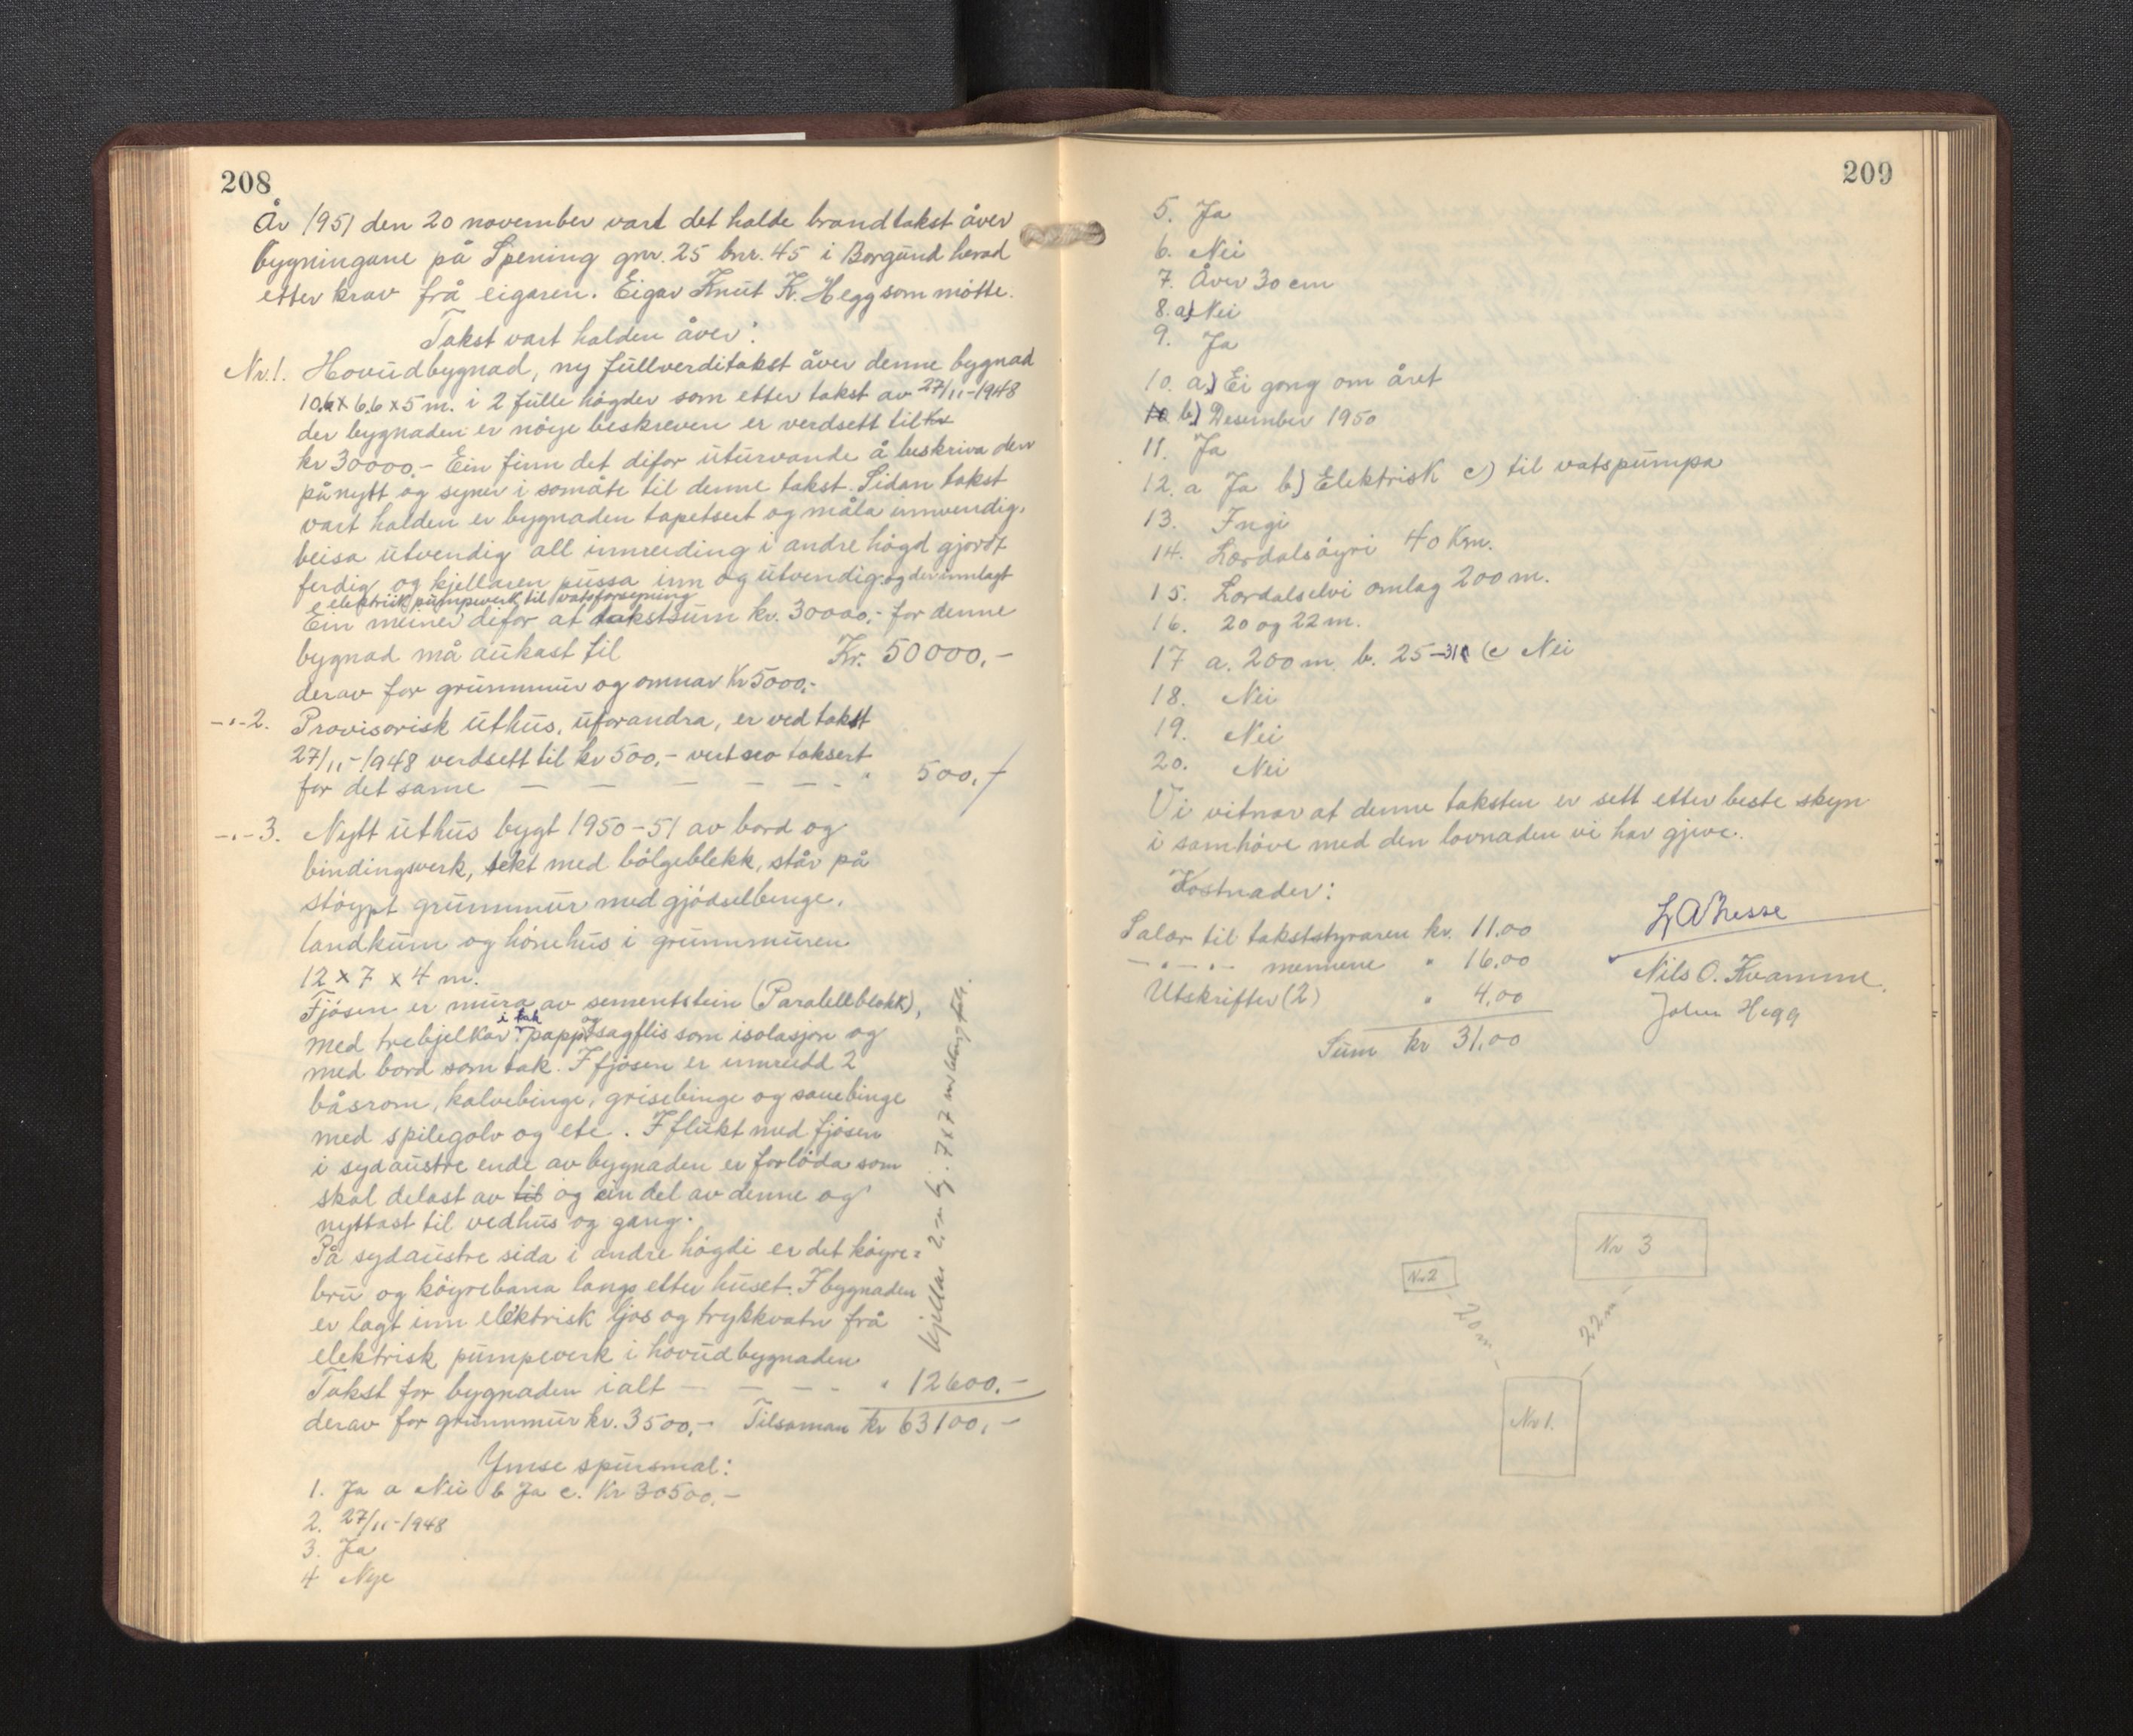 208
År 1951 den 20 november vart det halde brandtakst åver
bygningane på Spening gnr. 25 bnr. 45 i Borgund herad
etter krav frå eigaren. Eigar Knut K. Hegg som møtte.
Takst vart halden åver:
Nr. 1. Hovudbygnad, ny fullverditakst åver denne bygnad
10,6 x 6,6 x 5 m. i 2 fulle høgder som etter takst av 27/11-1948
der bygnaden er nøye beskreven er verdsett til kr
kr 30000,- Ein finn det difor uturvande å beskriva den
på nytt og syner i somåte til denne takst. Sidan takst
vart halden er bygnaden tapetsert og måla innvendig,
beisa utvendig all innreiding i andre høgd gjordt
ferdig og kjellaren pussa inn og utvendig og der innlagt
elektrisk pumpeverk til vatsforsyning
Ein meiner difor at takstsum kr. 30000,- for denne
bygnad må aukast til Kr. 50000,-
derav for grunnmur og omnar Kr 5000,-
-"- 2. Provisorisk uthus, uforandra, er ved takst
27/11-1948 verdsett til kr 500,- vert seo taksert
for det same — — — — - - " 500,-
-"- 3. Nytt uthus bygt 1950-51 av bord og
bindingsverk, tekt med bølgeblekk, står på
støypt grunnmur med gjødselbinge,
landkum og hønehus i grunnmuren
12 x 7 x 4 m.
Fjøsen er mura av sementstein (Paralellblokk),
med trebjelkar i tak papp og sagflis som isolasjon og
med bord som tak. I fjøsen er innreidd 2
båsrom, kalvebinge, grisebinge og sauebinge
med spilegolv og ete. I flukt med fjøsen
i sydaustre ende av bygnaden er forløda som
skal delast av til og ein del av denne og
nyttast til vedhus og gang.
På sydaustre sida i andre høgdi er det køyre=
bru og køyrebana langs etter huset. I bygnaden
er lagt inn elektrisk ljos og trykkvatn frå
elektrisk pumpeverk i hovudbygnaden
Takst for bygnaden ialt — — - - " 12600,-
derav for grunnmur kr. 3500,- Tilsaman kr 63100,-
Ymse spursmal:
1. Ja a Nei b Ja c. Kr 30500,-
2. 27/11-1948
3. Ja
4 Nye
209
5. Ja
6. Nei
7. Åver 30 cm
8. a) Nei
9. Ja
10. a) Ei gong om året
10 b) Desember 1950
11. Ja
12. a Ja b) Elektrisk c) til vatspumpa
13. Ingi
14. Lærdalsøyri 40 Km.
15. Lærdalselvi omlag 200 m.
16. 20 og 22 m.
17 a. 200 m b. 25 c Nei
18. Nei
19. Nei
20. Nei
Vi vitnar at denne taksten er sett etter beste skyn
i samhøve med den lovnaden vi har gjeve.
Kostnader:
Salær til takststyraren kr. 11,00
-"-"- mennene " 16,00
Utskrifter (2) " 4,00
Sum kr 31,00
Nils O. Kvamme.
John Hegg
Nr 3
Nr 2
20 m
22 m
Nr 1.